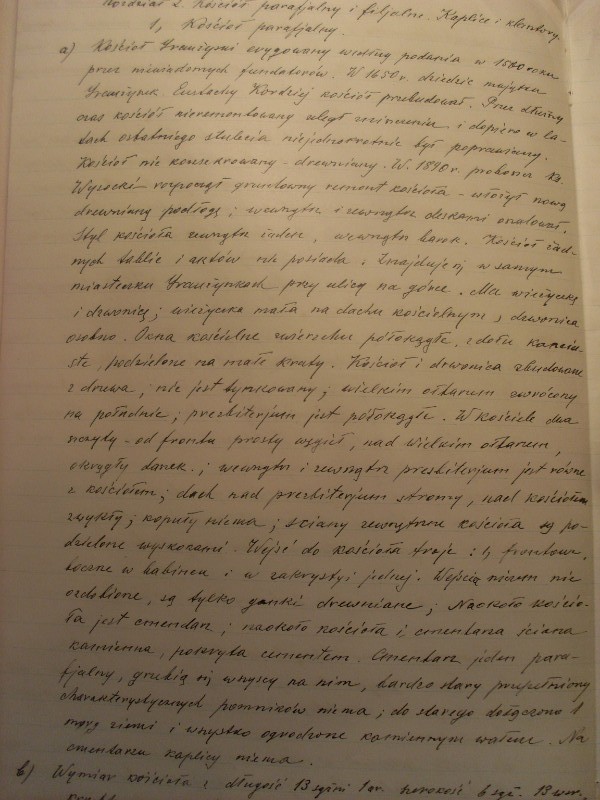 Rozdział 2. Kościół parafjalny i filjalne. Kaplice i klasztory.
1, Kościół parafjalny.
a) Kościół Uranżymi erygowany według podania w 1500 roku
przez niewiadomych fundatorów. W 1650 r. dziedzic majątku
Eustachy Kordziej kościół przebudował. Przez dłuższy
czas kościół nieremontowany uległ zniszczeniu i dopiero w la-
tach ostatniego stulecia niejednokrotnie był poprawiany.
Kościół nie konsekrowany - drewniany. W 1890 r. proboszcz Ks.
Wysocki rozpoczął gruntowny remont kościoła - włożył nową
drewnianą podłogę; wewnątrz i zewnątrz deskami oszalował.
Styl kościoła zewnątrz żaden, wewnątrz barok. Kościół żad-
nych tablic i aktów nie posiada. Znajduje się w samym
miasteczku przy ulicy na górze. Ma wieżyczkę
i dzwonicę; wieżyczka mała na dachu kościelnym, dzwonica
osobno. Okna kościelne zwierzchu półokrągłe, z dołu kancia-
ste, podzielone na małe kraty. Kościół i dzwonica zbudowane
z drzewa; nie jest tynkowany; wielkim ołtarzem zwrócony
na południe; prezbiterjum jest półokrągłe. W kościele dwa
szczyty - od frontu prosty, nad wielkim ołtarzem,
okrągły daszek.; wewnątrz i zewnątrz prezbiterjum jest równe
z kościołem; dach nad prezbiterjum stromy, nad kościołem
zwykły; kopuły niema; ściany zewnętrzne kościoła są po-
dzielone wyskokami. Wejść do kościoła troje: frontowe,
boczne w babińcu i w zakrystyi jednej. Wejścia niczem nie
ozdobione, są tylko ganki drewniane; Naokoło kościo-
ła jest cmentarz; naokoło kościoła i cmentarza ściana
kamienna, pokryta cementem. Cmentarz jeden para-
fjalny, grzebią się wszyscy na nim, bardzo stary przepełniony
charakterystycznych pomników niema; do starego dołączono 1
morg ziemi i wszystko ogrodzone kamiennym wałem. Na
cmentarzu kaplicy niema.
b) Wymiar kościoła: długość 13 sążni 1 ar. szerokość 6 sąż. 13 wer.